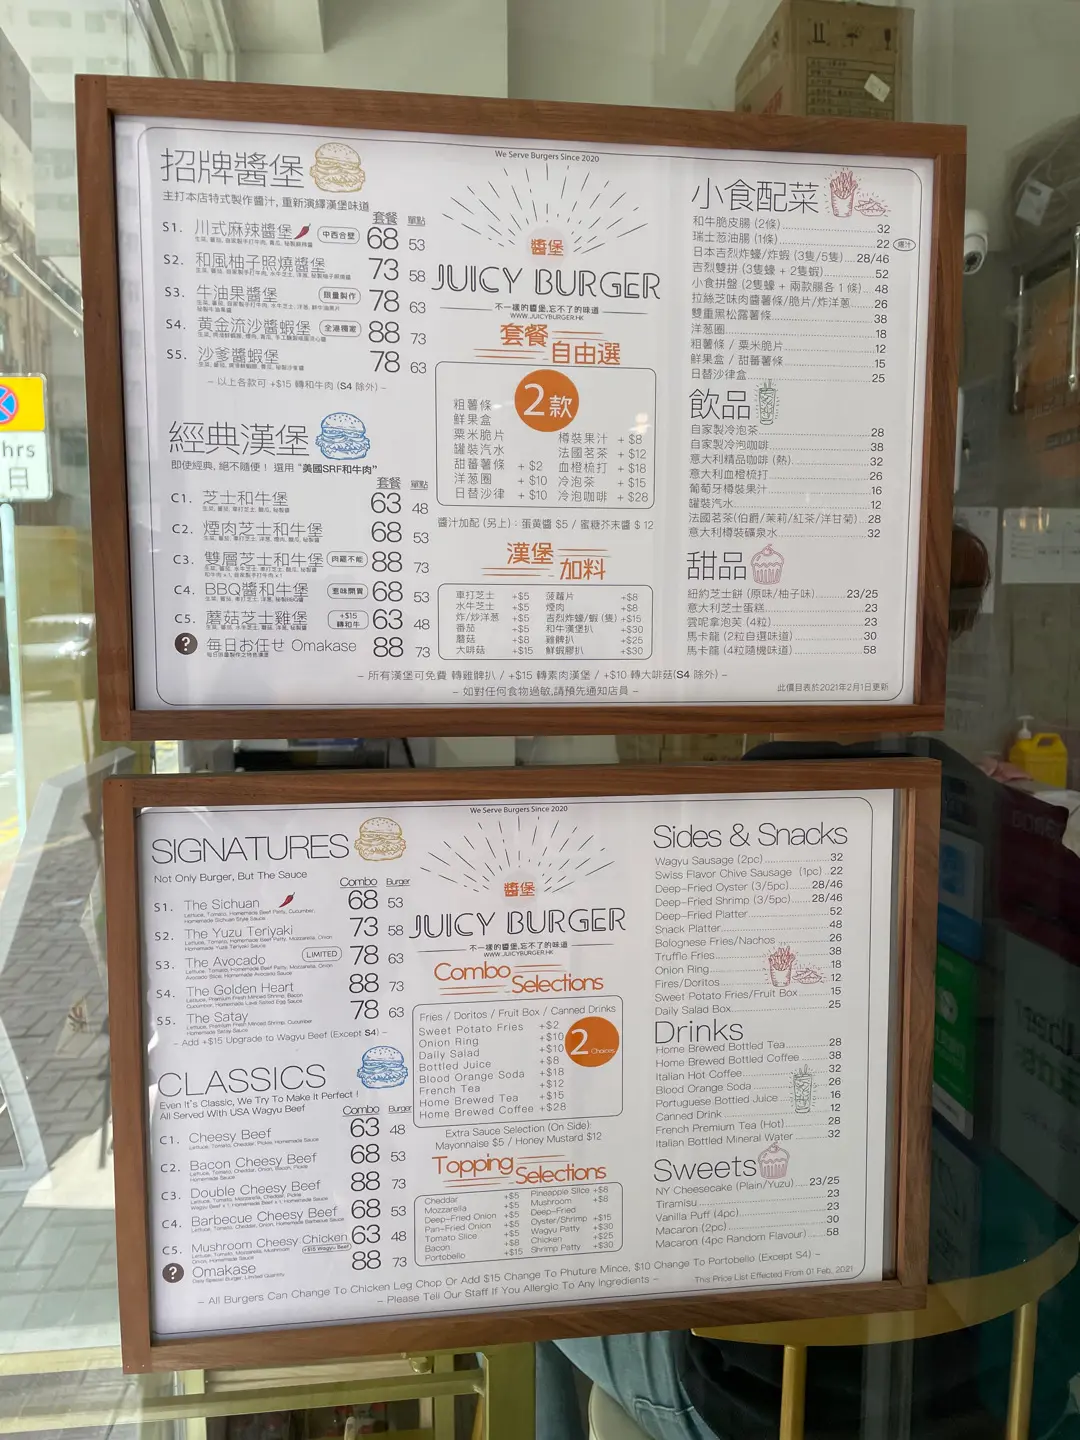 We Serve Burgers Since 2020
招牌醬堡
主打本店特式製作醬汁, 重新演繹漢堡味道
套餐 單點
S1. 川式麻辣醬堡 中西合壁 68 53
S2. 和風柚子照燒醬堡 73 58
S3. 牛油果醬堡 限量製作 78 63
S4. 黃金流沙醬蝦堡 全港獨家 88 73
S5. 沙爹醬蝦堡 78 63
– 以上各款可 +$15 轉和牛肉 (S4 除外) –
經典漢堡
即使經典, 絕不隨便！ 選用 "美國SRF和牛肉"
套餐 單點
C1. 芝士和牛堡 63 48
C2. 煙肉芝士和牛堡 68 53
C3. 雙層芝士和牛堡 肉羅不能 88 73
C4. BBQ醬和牛堡 惹味開胃 68 53
C5. 蘑菇芝士雞堡 +$15 轉和牛 63 48
? 毎日お任せ Omakase 88 73
醬堡
JUICY BURGER
不一樣的醬堡,忘不了的味道
WWW.JUICYBURGER.HK
套餐
自由選
2款
粗薯條
鮮果盒
粟米脆片
罐裝汽水
甜蕃薯條 + $2
洋蔥圈 + $10
日替沙律 + $10
樽裝果汁 + $8
法國茗茶 + $12
血橙梳打 + $18
冷泡茶 + $15
冷泡咖啡 + $28
醬汁加配 (另上) : 蛋黃醬 $5 / 蜜糖芥末醬 $ 12
漢堡
加料
車打芝士 +$5
水牛芝士 +$5
炸/炒洋蔥 +$5
番茄 +$5
蘑菇 +$8
大啡菇 +$15
菠蘿片 +$8
煙肉 +$8
吉烈炸蠔/蝦 (隻) +$15
和牛漢堡扒 +$30
雞髀扒 +$25
鮮蝦膠扒 +$30
小食配菜
和牛脆皮腸 (2條) 32
瑞士葱油腸 (1條) 22 爆汁
日本吉烈炸蠔/炸蝦 (3隻/5隻) 28/46
吉烈雙拼 (3隻蠔 + 2隻蝦) 52
小食拼盤 (2隻蠔 + 兩款腸各 1 條) 48
拉絲芝味肉醬薯條/脆片/炸洋蔥 26
雙重黑松露薯條 38
洋蔥圈 18
粗薯條 / 粟米脆片 12
鮮果盒 / 甜蕃薯條 15
日替沙律盒 25
飲品
自家製冷泡茶 28
自家製冷泡咖啡 38
意大利精品咖啡 (熱) 32
意大利血橙梳打 26
葡萄牙樽裝果汁 16
罐裝汽水 12
法國茗茶(伯爵/茉莉/紅茶/洋甘菊) 28
意大利樽裝礦泉水 32
甜品
紐約芝士餅 (原味/柚子味) 23/25
意大利芝士蛋糕 23
雲呢拿泡芙 (4粒) 23
馬卡龍 (2粒自選味道) 30
馬卡龍 (4粒隨機味道) 58
– 所有漢堡可免費 轉雞髀扒 / +$15 轉素肉漢堡 / +$10 轉大啡菇(S4 除外) –
– 如對任何食物過敏,請預先通知店員 –
此價目表於2021年2月1日更新
We Serve Burgers Since 2020
SIGNATURES
Not Only Burger, But The Sauce
Combo Burger
S1. The Sichuan 68 53
Lettuce, Tomato, Homemade Beef Patty, Cucumber,
Homemade Sichuan Style Sauce
S2. The Yuzu Teriyaki 73 58
Lettuce, Tomato, Homemade Beef Patty, Mozzarella, Onion
Homemade Yuzu Teriyaki Sauce
S3. The Avocado LIMITED 78 63
Lettuce, Tomato, Homemade Beef Patty, Mozzarella, Onion
Avocado Slice, Homemade Avocado Sauce
S4. The Golden Heart 88 73
Lettuce, Premium Fresh Minced Shrimp, Bacon
Cucumber, Homemade Lava Salted Egg Sauce
S5. The Satay 78 63
Lettuce, Premium Fresh Minced Shrimp, Cucumber
Homemade Satay Sauce
– Add +$15 Upgrade to Wagyu Beef (Except S4) –
CLASSICS
Even It's Classic, We Try To Make It Perfect !
All Served With USA Wagyu Beef
Combo Burger
C1. Cheesy Beef 63 48
Lettuce, Tomato, Cheddar, Pickle, Homemade Sauce
C2. Bacon Cheesy Beef 68 53
Lettuce, Tomato, Cheddar, Onion, Bacon, Pickle
Homemade Sauce
C3. Double Cheesy Beef 88 73
Lettuce, Tomato, Mozzarella, Cheddar, Pickle
Wagyu Beef x 1, Homemade Beef x 1, Homemade Sauce
C4. Barbecue Cheesy Beef 68 53
Lettuce, Tomato, Cheddar, Onion, Homemade Barbecue Sauce
C5. Mushroom Cheesy Chicken 63 48
Lettuce, Tomato, Mozzarella, Mushroom
Onion, Homemade Sauce +$15 Wagyu Beef
? Omakase 88 73
Daily Special Burger, Limited Quantity
醬堡
JUICY BURGER
不一樣的醬堡,忘不了的味道
WWW.JUICYBURGER.HK
Combo
Selections
Fries / Doritos / Fruit Box / Canned Drinks
2 Choices
Sweet Potato Fries +$2
Onion Ring +$10
Daily Salad +$10
Bottled Juice +$8
Blood Orange Soda +$18
French Tea +$12
Home Brewed Tea +$15
Home Brewed Coffee +$28
Extra Sauce Selection (On Side):
Mayonnaise $5 / Honey Mustard $12
Topping
Selections
Cheddar +$5
Mozzarella +$5
Deep-Fried Onion +$5
Pan-Fried Onion +$5
Tomato Slice +$5
Bacon +$8
Portobello +$15
Pineapple Slice +$8
Mushroom +$8
Deep-Fried
Oyster/Shrimp +$15
Wagyu Patty +$30
Chicken +$25
Shrimp Patty +$30
Sides & Snacks
Wagyu Sausage (2pc) 32
Swiss Flavor Chive Sausage (1pc) 22
Deep-Fried Oyster (3/5pc) 28/46
Deep-Fried Shrimp (3/5pc) 28/46
Deep-Fried Platter 52
Snack Platter 48
Bolognese Fries/Nachos 26
Truffle Fries 38
Onion Ring 18
Fires/Doritos 12
Sweet Potato Fries/Fruit Box 15
Daily Salad Box 25
Drinks
Home Brewed Bottled Tea 28
Home Brewed Bottled Coffee 38
Italian Hot Coffee 32
Blood Orange Soda 26
Portuguese Bottled Juice 16
Canned Drink 12
French Premium Tea (Hot) 28
Italian Bottled Mineral Water 32
Sweets
NY Cheesecake (Plain/Yuzu) 23/25
Tiramisu 23
Vanilla Puff (4pc) 23
Macaron (2pc) 30
Macaron (4pc Random Flavour) 58
– All Burgers Can Change To Chicken Leg Chop Or Add $15 Change To Phuture Mince, $10 Change To Portobello (Except S4) –
– Please Tell Our Staff If You Allergic To Any Ingredients –
This Price List Effected From 01 Feb, 2021
hrs
日